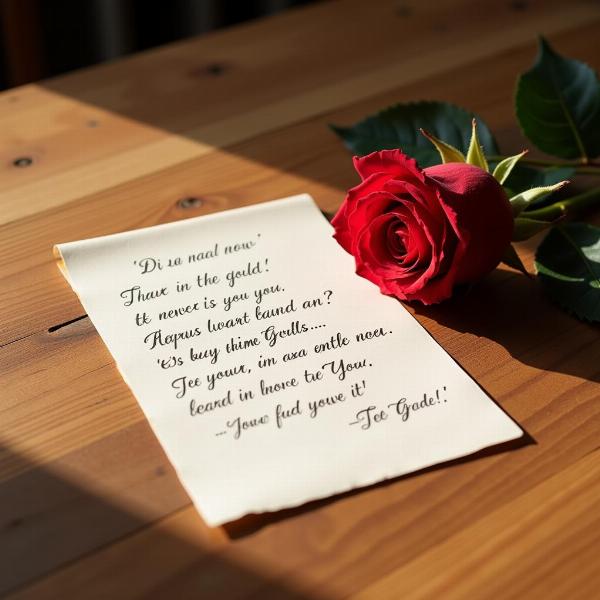 'Di ia naal now'
Thaur in the gould!
tk never is you you.
Hapus lowart baund an?
'Es buy thime Grolls....
Jee your, im axa entle noer.
leard in lnore te You.
...Jowe fud yowe it'
-Jee Gade!.'